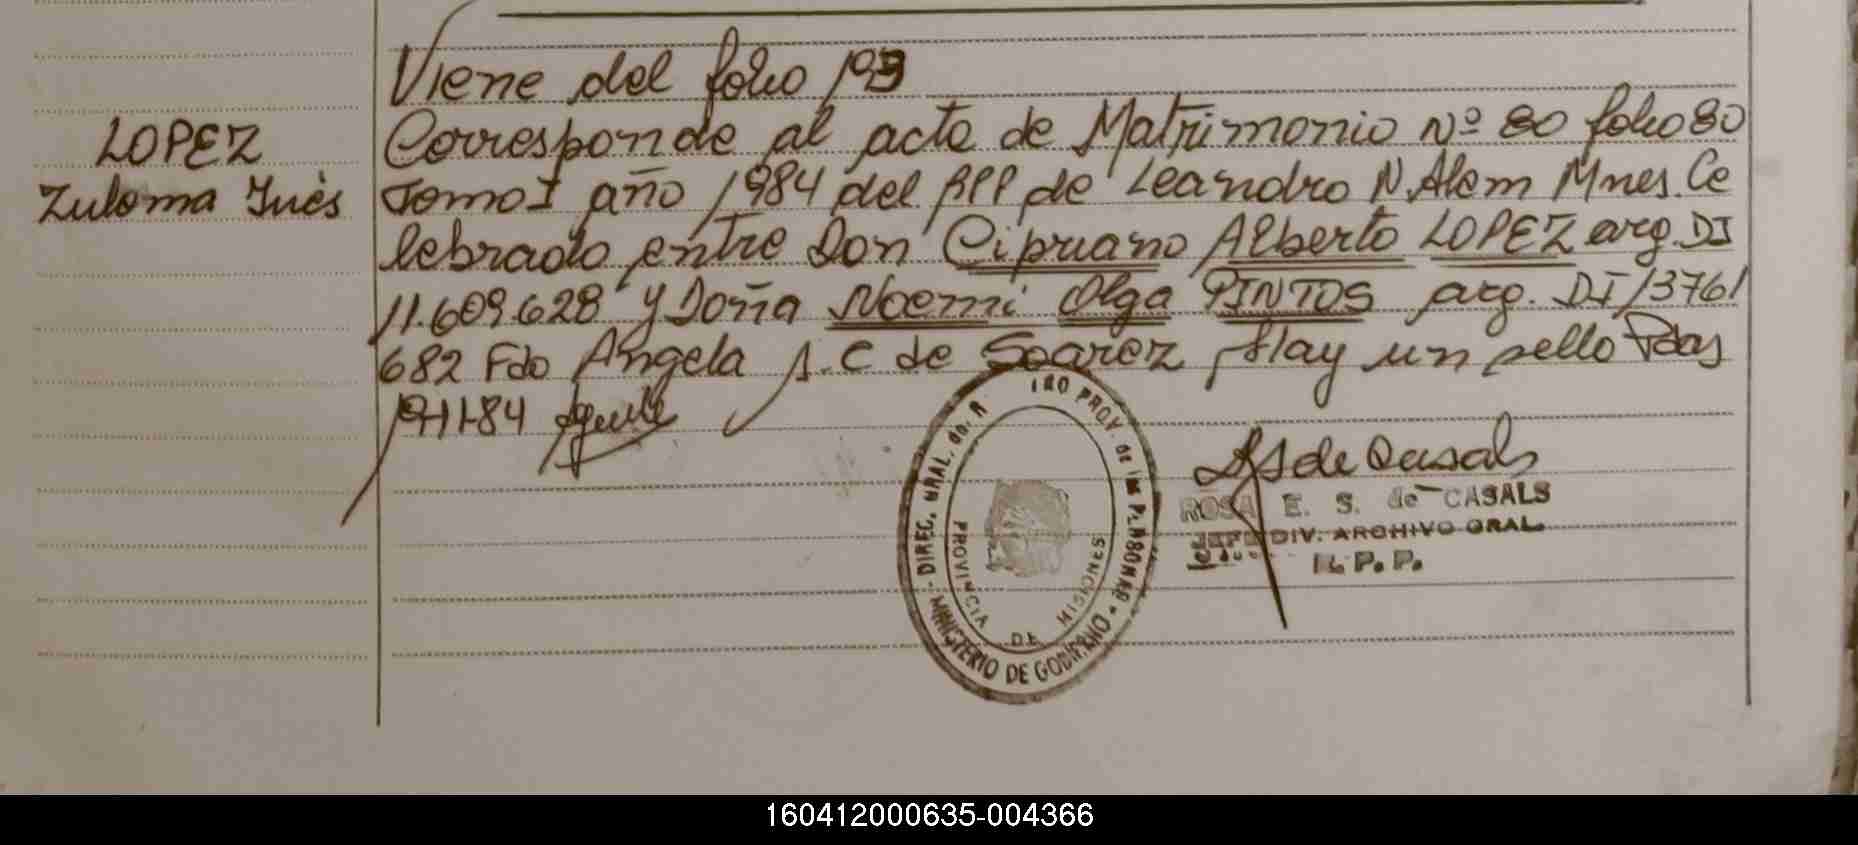 Viene del folio 193
LOPEZ
Zulema Inés
Corresponde al acta de Matrimonio Nº 80 folio 80
Tomo I año 1984 del RPP de Leandro N. Alem Mnes. Ce
lebrado entre Don Cipriano Alberto LOPEZ arg. DI
11.609.628 y Doña Noemi Olga PINTOS arg. DI 13761
682 Fdo Angela A. C de Soarez Hay un sello Pdas
19-11-84
S de Casals
ROSA E. S. de CASALS
JEFE DIV. ARCHIVO GRAL.
R. P. P.
DIREC. GRAL. PROV. de las PERSONAS
MINISTERIO DE GOBIERNO
PROVINCIA DE MISIONES
160412000635-004366